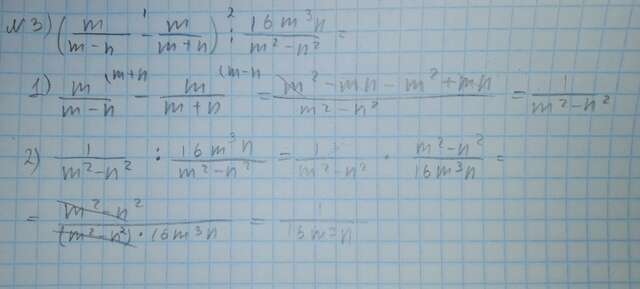 N 3) (m/(m-n) -¹ m/(m+n)) :² 16m³n/(m²-n²) =
1) m/(m-n) (m+n - m/(m+n) (m-n = (m²-mn-m²+mn)/(m²-n²) = 1/(m²-n²)
2) 1/(m²-n²) : 16m³n/(m²-n²) = 1/(m²-n²) · (m²-n²)/(16m³n) =
= (m²-n²)/((m²-n²)·16m³n) = 1/(16m³n)